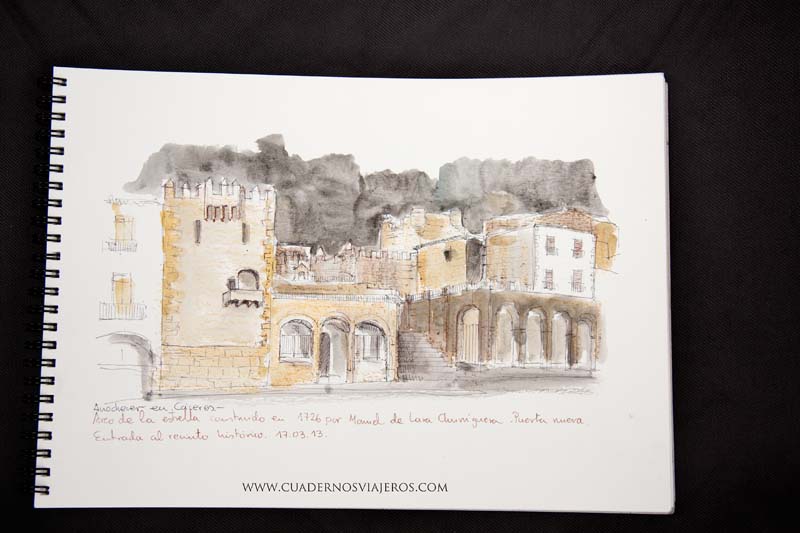 Anochecer en Cáceres-
Arco de la estrella construido en 1726 por Manuel de Lara Churriguera. Puerta nueva
Entrada al recinto histórico. 17.03.13.
WWW.CUADERNOSVIAJEROS.COM